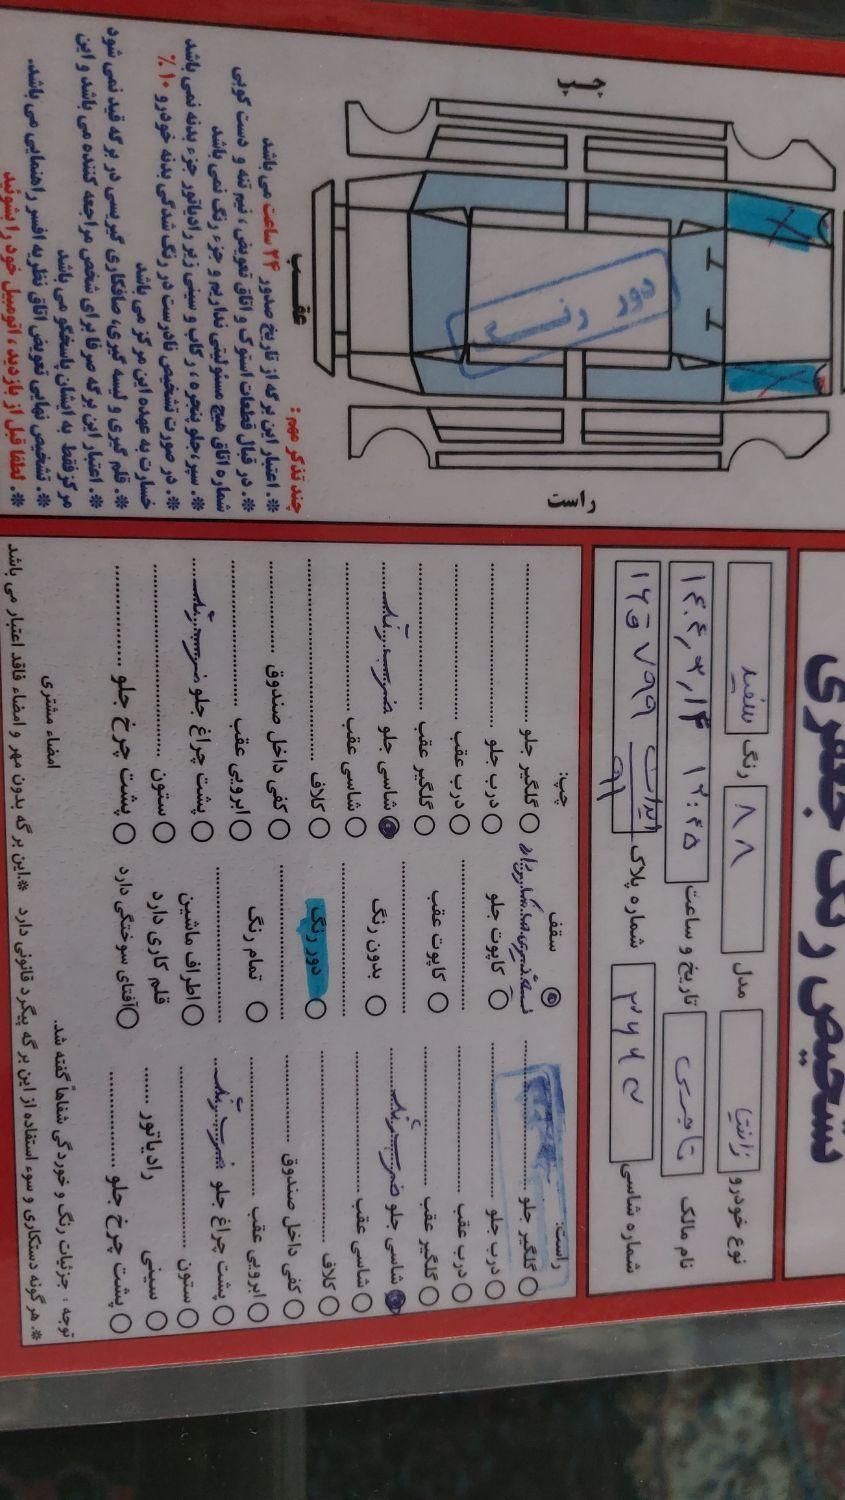 تشخیص رنگ جعفری
نوع خودرو زانتیا مدل ۸۸ رنگ سفید
نام مالک تاریخ و ساعت ۱۴۰۴,۳,۱۴ ۱۲:۴۵
شماره شاسی شماره پلاک ۱۶ ق ۷۹۹ ایران
راست:
گلگیر جلو
درب جلو
درب عقب
گلگیر عقب
شاسی جلو ضربه رنگ
شاسی عقب
کلاف
کفی داخل صندوق
ابرویی عقب
پشت چراغ جلو
ستون
سینی رادیاتور
پشت چرخ جلو
سقف
کاپوت جلو
کاپوت عقب
بدون رنگ
دور رنگ
تمام رنگ
اطراف ماشین
قلم کاری دارد
آفتاب سوختگی دارد
چپ:
گلگیر جلو
درب جلو
درب عقب
گلگیر عقب
شاسی جلو ضربه رنگ
شاسی عقب
کلاف
کفی داخل صندوق
ابرویی عقب
پشت چراغ جلو
ستون
پشت چرخ جلو
توجه : جزئیات رنگ و خوردگی شفاهاً گفته شد.
امضاء مشتری
※. هرگونه دستکاری و سوء استفاده از این برگه پیگرد قانونی دارد ※. این برگه بدون مهر و امضاء فاقد اعتبار می باشد
چپ
دور رنگ
عقب
راست
چند تذکر مهم :
※. اعتبار این برگه از تاریخ صدور ۲۴ ساعت می باشد
※. در قبال قطعات استوک و اتاق تعویض، نیم تنه و دست کوبی
شماره اتاق هیچ مسئولیتی نداریم و جزء رنگ نمی باشد
※. سپر، جلو پنجره، رکاب و سینی زیر رادیاتور جزء بدنه نمی باشد
※. در صورت تشخیص نادرست در رنگ شدگی بدنه خودرو ۱۰ ٪
خسارت به عهده این مرکز می باشد
※. قلم گیری و لیسه گیری، صافکاری گیریسی در برگه قید نمی شود
※. اعتبار این برگه صرفا برای شخص مراجعه کننده می باشد و این
مرکز فقط به ایشان پاسخگو می باشد
※. تشخیص نهایی تعویض اتاق نظریه افسر راهنمایی می باشد.
※. لطفا قبل از بازدید، اتومبیل خود را بشوئید